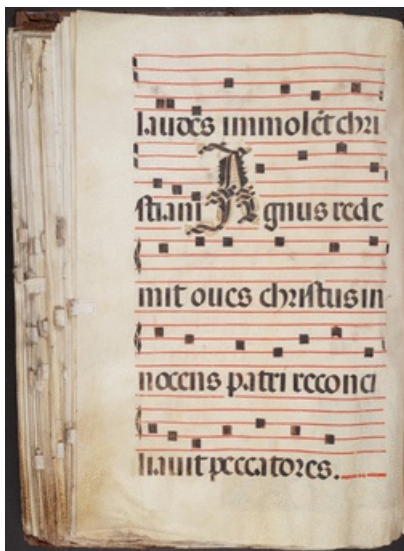 laudes immolēt chri
stiani Agnus rede
mit oues christus in
nocens patri reconci
liauit peccatores.